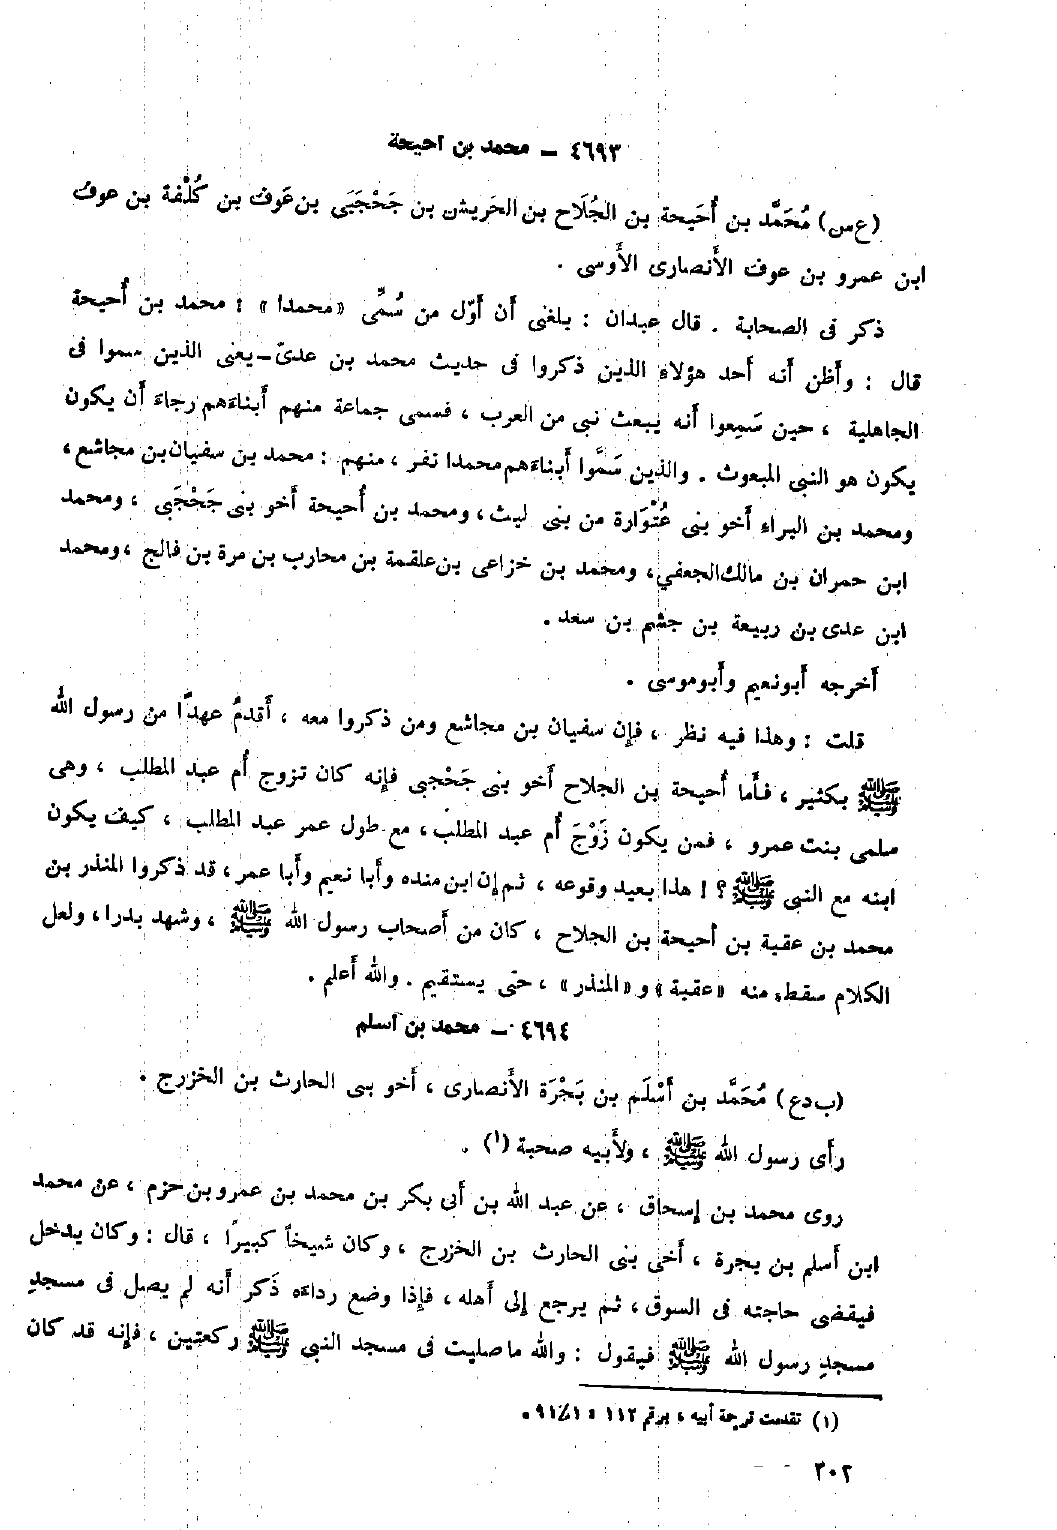 ٤٦٩٣ – محمد بن أحيحة
(ع س) مُحَمَّد بن أُحَيحة بن الجُلَاح بن الحَريش بن جَحْجَبَى بن عَوف بن كُلْفة بن عوف
ابن عمرو بن عوف الأَنصارى الأَوسى .
ذكر فى الصحابة . قال عبدان : بلغنى أَن أَوّل من سُمِّى «محمدا» : محمد بن أُحيحة
قال : وأَظن أَنه أَحد هؤلاءِ الذين ذكروا فى حديث محمد بن عدىّ – يعنى الذين سموا فى
الجاهلية ، حين سَمِعوا أَنه يبعث نبى من العرب ، فسمى جماعة منهم أَبناءَهم رجاءَ أَن يكون
يكون هو النبى المبعوث . والذين سَمَّوا أَبناءَهم محمدا نفر ، منهم : محمد بن سفيان بن مجاشع ،
ومحمد بن البراء أَخو بنى عُتْوَارة من بنى ليث ، ومحمد بن أُحيحة أَخو بنى جَحْجَبى ، ومحمد
ابن حمران بن مالك الجعفي ، ومحمد بن خزاعى بن علقمة بن محارب بن مرة بن فالج ، ومحمد
ابن عدى بن ربيعة بن جشم بن سعد .
أَخرجه أَبو نعيم وأَبو موسى .
قلت : وهذا فيه نظر ، فإِن سفيان بن مجاشع ومن ذكروا معه ، أَقدمُ عهدًا من رسول الله
ﷺ بكثير ، فأَما أُحيحة بن الجلاح أَخو بنى جَحْجبى فإِنه كان تزوج أُم عبد المطلب ، وهى
سلمى بنت عمرو ، فمن يكون زَوْجَ أُم عبد المطلب ، مع طول عمر عبد المطلب ، كيف يكون
ابنه مع النبى ﷺ ؟ ! هذا بعيد وقوعه ، ثم إِن ابن منده وأَبا نعيم وأَبا عمر ، قد ذكروا المنذر بن
محمد بن عقبة بن أُحيحة بن الجلاح ، كان من أَصحاب رسول الله ﷺ ، وشهد بدرا ، ولعل
الكلام سقط منه «عقبة» و«المنذر» ، حتى يستقيم . والله أَعلم .
٤٦٩٤ – محمد بن أسلم
(ب د ع) مُحَمَّد بن أَسْلَم بن بَجْرَة الأَنصارى ، أَخو بنى الحارث بن الخزرج .
رأَى رسول الله ﷺ ، ولأَبيه صحبة (١) .
روى محمد بن إِسحاق ، عن عبد الله بن أَبى بكر بن محمد بن عمرو بن حزم ، عن محمد
ابن أَسلم بن بجرة ، أَخى بنى الحارث بن الخزرج ، وكان شيخاً كبيرًا ، قال : وكان يدخل
فيقضى حاجته فى السوق ، ثم يرجع إِلى أَهله ، فإِذا وضع رداءَه ذَكر أَنه لم يصل فى مسجدِ
مسجدِ رسول الله ﷺ فيقول : والله ما صليت فى مسجد النبى ﷺ ركعتين ، فإِنه قد كان
(١) تقدمت ترجمة أبيه ، برقم ١١٢ : ٩١/١ .
٣٠٢